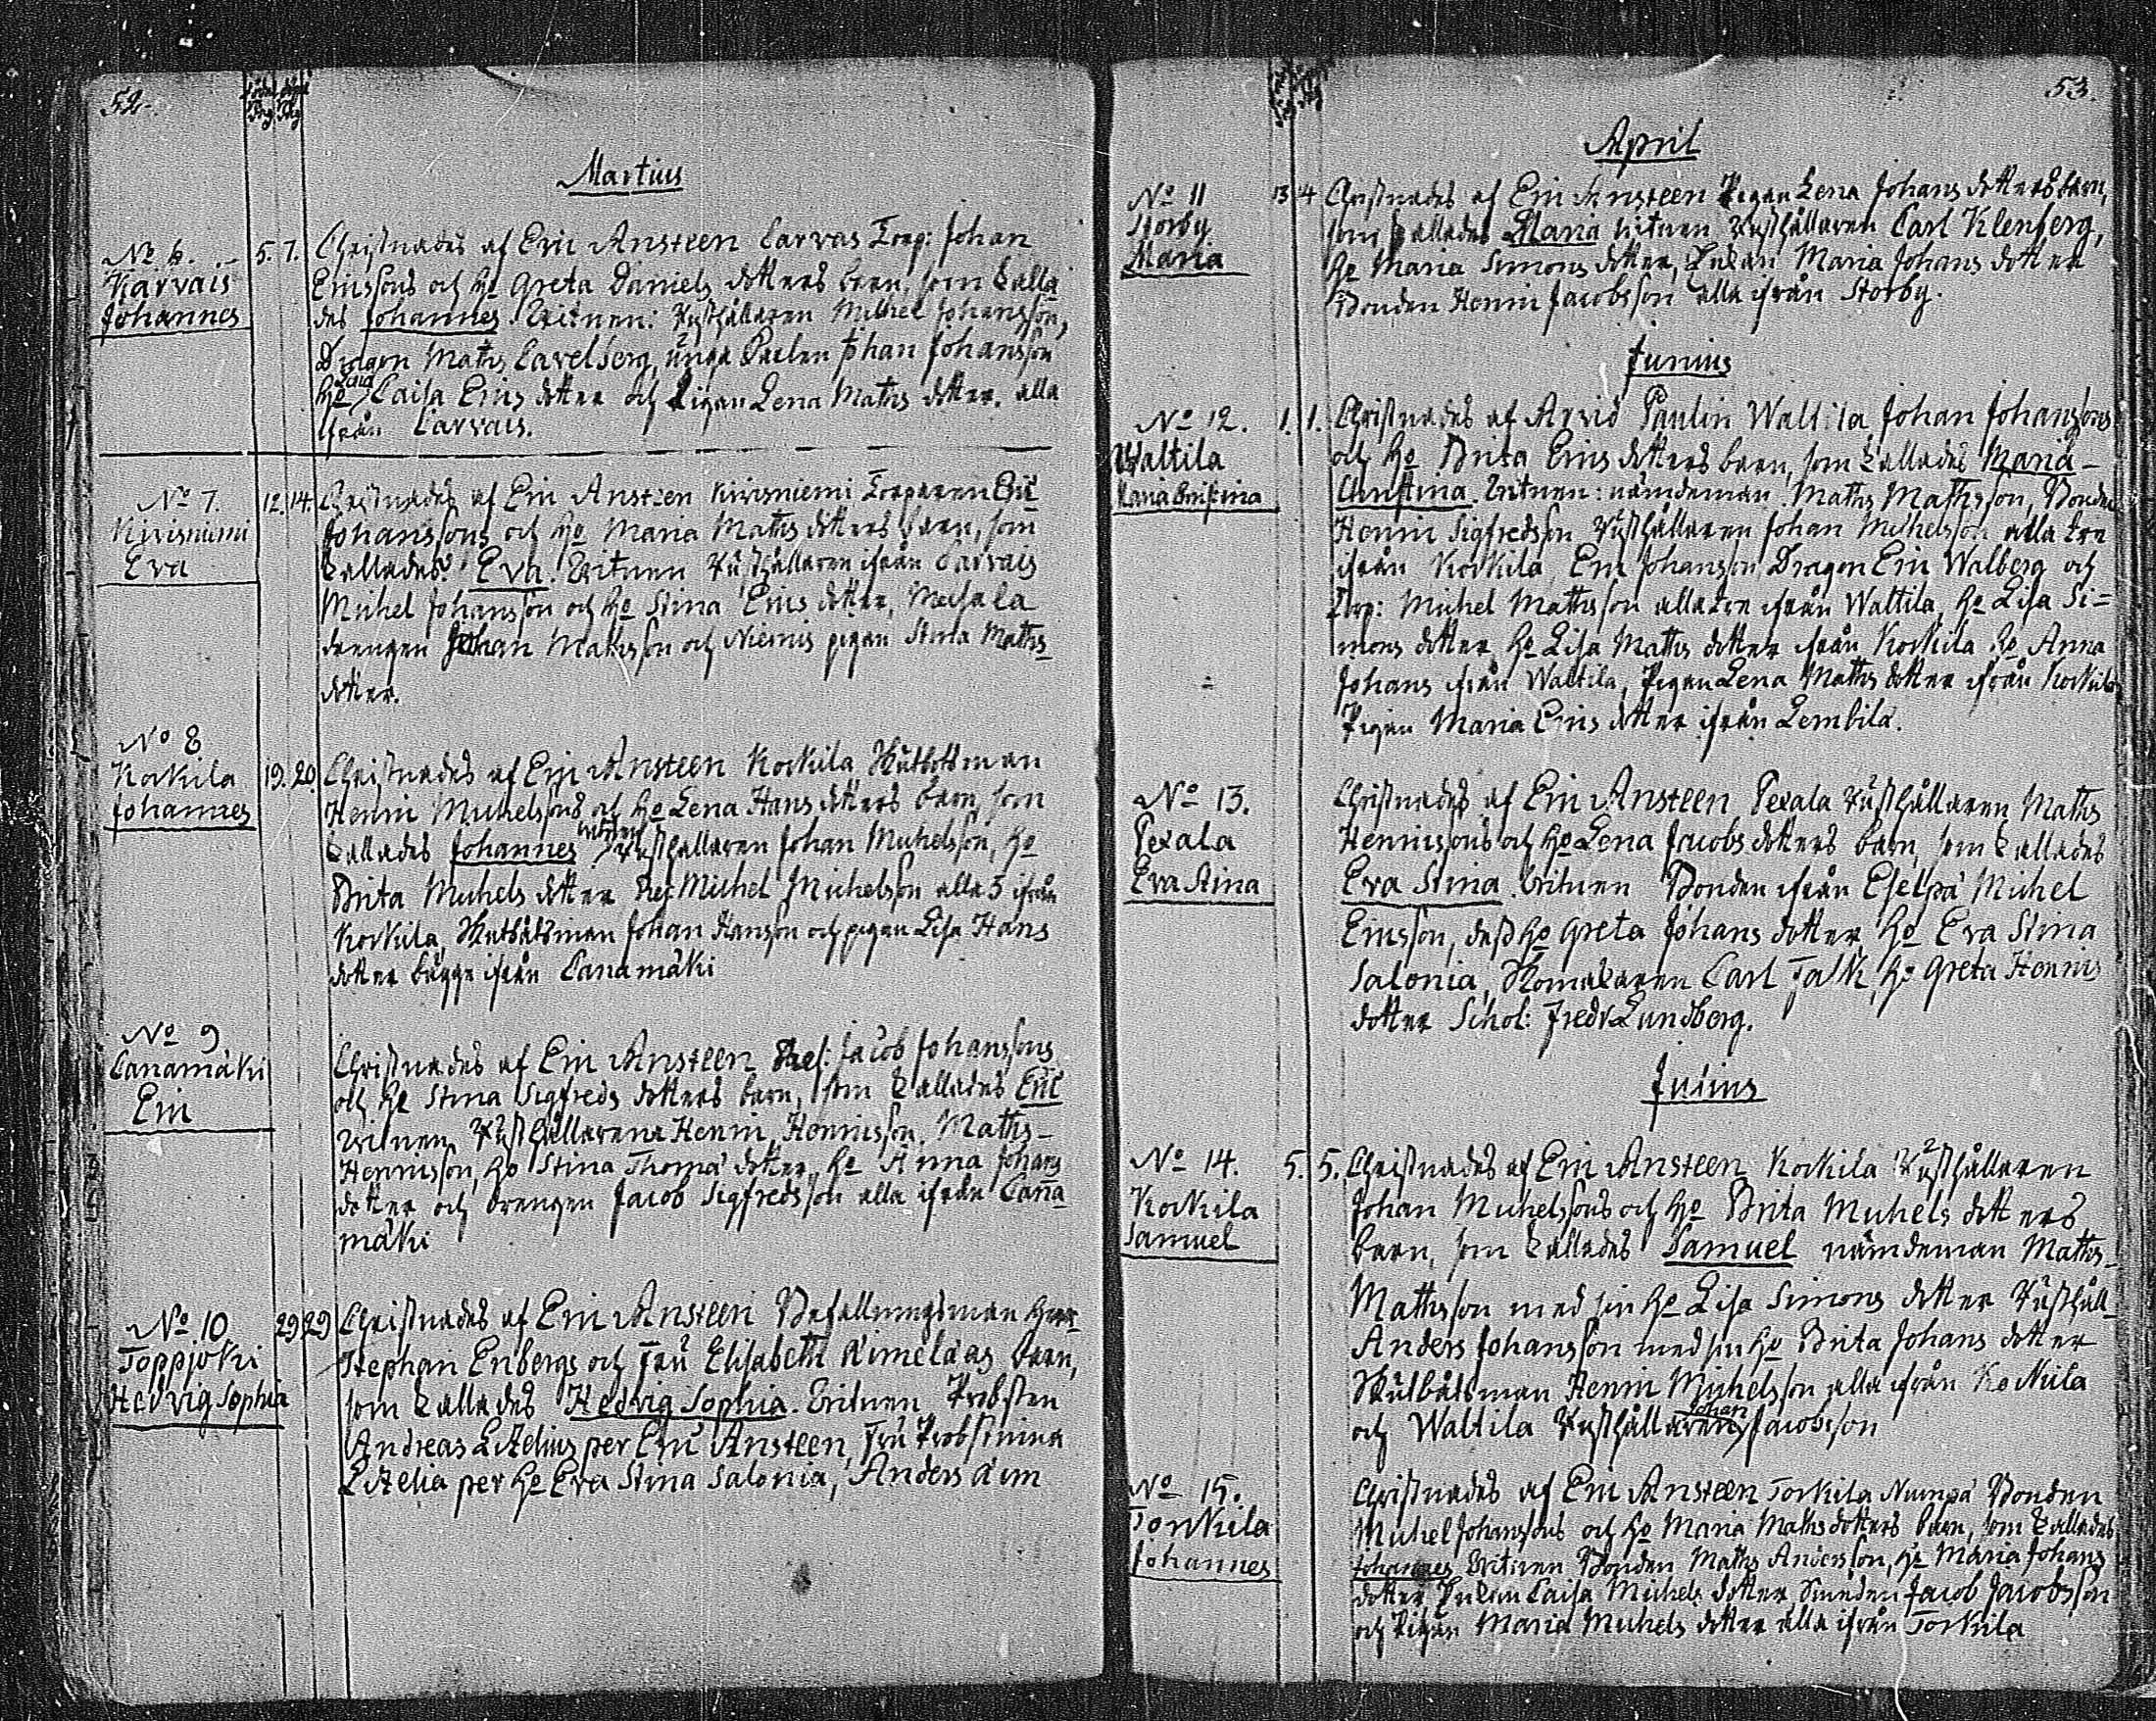 52.
Martius
No 6.
Karvais
Johannes
5. 7.
Christnades af Eric Ansteen Carvas Torp: Johan
Ericssons och ho Greta Daniels dotters barn, som kalla
des Johannes. Vitnen: Rusthållaren Michel Johansson,
Dragon Maths Cavelberg, unga Johan Johansson
Caisa Erics dotter och Pigan Lena Maths dotter. alla
ifrån Carvais.
No 7.
Kirisniemi
Eva
12. 14.
Christnades af Eric Ansteen Kirisniemi Torparen Eric
Johanssons och ho Maria Maths dotters barn, som
kallades Eva. Vitnen Rusthållaren ifrån Carvais
Michel Johansson och ho Stina Erics dotter,
drengen Johan Mathsson och Niemis pigan Stina Maths
dotter.
No 8
Korkila
Johannes
19. 20.
Christnades af Eric Ansteen Korkila
Henric Michelssons och ho Lena Hans dotters barn, som
kallades Johannes vitnen Rusthållaren Johan Michelsson, ho
Brita Michels dotter Michel Michelsson alla 5 ifrån
Korkila, Johan Hansson och pigan Lisa Hans
dotter bägge ifrån Canamäki
No 9
Canamäki
Eric
Christnades af Eric Ansteen Jacob Johanssons
och ho Stina Sigfreds dotters barn, som kallades Eric
vitnen Rusthållarena Henric Henricsson, Maths
Henricsson, ho Stina Thomä dotter, ho Anna Johans
dotter och drengen Jacob Sigfredsson alla ifrån Cana
mäki
No 10
Toppjoki
Hedvig Sophia
29 29
Christnades af Eric Ansteen Befallningsman
Stephan Enbergs och Fru Elisabeth barn,
som kallades Hedvig Sophia. Vitnen Probsten
Andreas per Eric Ansteen, Fru Probstinna
per ho Eva Stina Salonia, Anders
53.
April
No 11
Storby
Maria
13 14
Christnades af Eric Ansteen Pigan Lena Johans dotters barn,
som kallades Maria vitnen Rusthållaren Carl Klenberg,
ho Maria Simons dotter, Enkan Maria Johans dotter
Bonden Henric Jacobsson alla ifrån Storby.
Junius
No 12.
Waltila
Maria Christina
1. 1.
Christnades af Arvid Paulin Waltila Johan Johanssons
och ho Brita Erics dotters barn, som kallades Maria
Christina. Vitnen: nämdeman Maths Mathsson, Bonden
Henric Sigfredsson Rusthållaren Johan Michelsson alla tre
ifrån Korkila, Eric Johansson Dragon Eric Walberg och
Torp: Michel Mathsson alla tre ifrån Waltila, ho Lisa Si=
mons dotter ho Lisa Maths dotter ifrån Korkila ho Anna
Johans ifrån Waltila, Pigan Lena Maths dotter ifrån Korkila
Pigan Maria Erics dotter ifrån Lembila.
No 13.
Pexala
Eva Stina
Christnades af Eric Ansteen Pexala Rusthållaren Maths
Henricssons och ho Lena Jacobs dotters barn, som kallades
Eva Stina. Vitnen Bonden ifrån Eselpä Michel
Ericsson, dess ho Greta Johans dotter, ho Eva Stina
Salonia, Skomakaren Carl Falk, ho Greta Henrics
dotter Schol: Fredr Lundberg.
Julius
No 14.
Korkila
Samuel
5. 5.
Christnades af Eric Ansteen Korkila Rusthållaren
Johan Michelssons och ho Brita Michels dotters
barn, som kallades Samuel nämdeman Maths
Mathsson med sin ho Lisa Simons dotter Rusthåll
Anders Johansson med sin ho Brita Johans dotter
Henric Michelsson alla ifrån Korkila
och Waltila Rusthållaren Johan Jacobsson
No 15.
Torkila
Johannes
Christnades af Eric Ansteen Torkila Numpä Bonden
Michel Johanssons och ho Maria Maths dotters barn, som kallades
Johannes Vitnen Bonden Maths Andersson, ho Maria Johans
dotter Enkan Caisa Michels dotter Smeden Jacob Jacobsson
och Pigan Maria Michels dotter alla ifrån Torkila